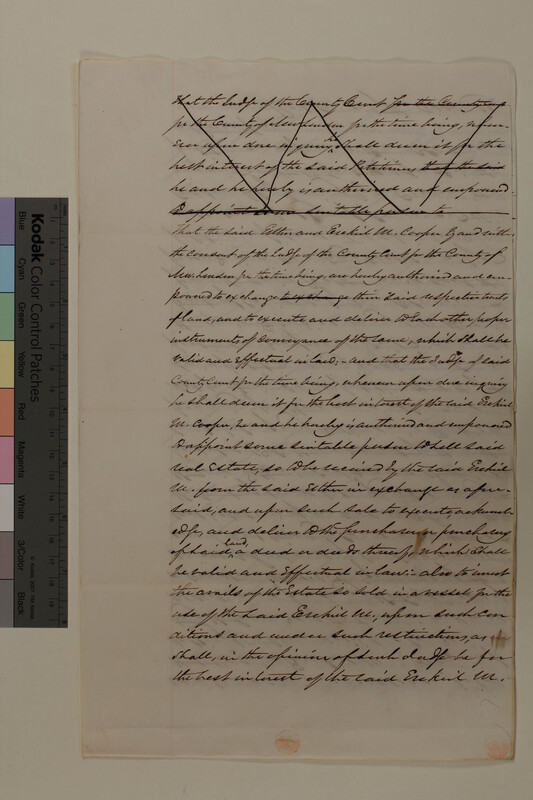 that the Judge of the County Court for the County
for the County of New London for the time being, when-
ever upon due inquiry he shall deem it for the
best interest of the said Petitioners that the said
he and he hereby is authorised and empowered
to appoint some suitable person to
that the said Esther and Ezekiel M. Cooper by and with
the consent of the Judge of the County Court for the County of
New London for the time being, are hereby authorised and em-
powered to exchange their said respective tracts
of land, and to execute and deliver to each other proper
instruments of conveyance of the same, which shall be
valid and effectual in law;- And that the Judge of said
County Court for the time being, whenever upon due inquiry
he shall deem it for the best interest of the said Ezekiel
M. Cooper, he and he hereby is authorised and empowered
to appoint some suitable person to sell said
real Estate, so to be received by the said Ezekiel
M. from the said Esther in exchange as afore-
said, and upon such sale to execute, acknowl-
edge, and deliver to the purchaser or purchasers
of said land, a deed or deeds thereof, which shall
be valid and effectual in law:- also to invest
the avails of the Estate so sold in a vessel for the
use of the said Ezekiel M., upon such con
ditions and under such restrictions, as
shall, in the opinion of such Judge be for
the best interest of the said Ezekiel M.
Kodak Color Control Patches
Blue
Cyan
Green
Yellow
Red
Magenta
White
3/Color
Black